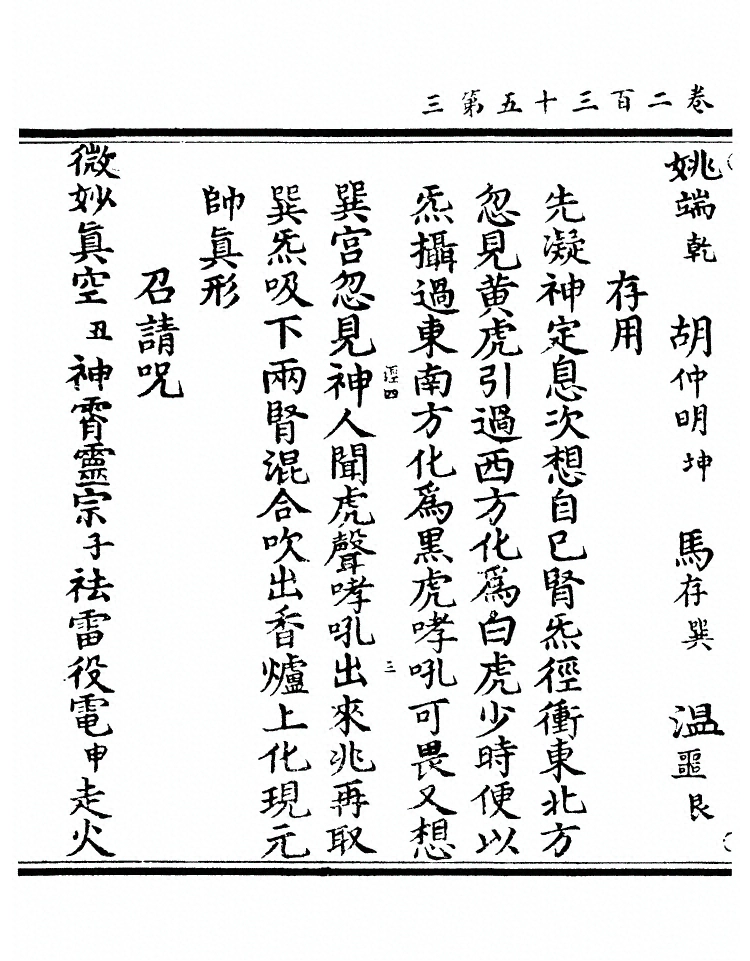 卷二百三十五第三
姚端乾 胡仲明坤 馬存巽 温噩艮
存用
先凝神定息次想自己腎炁徑衝東北方
忽見黄虎引過西方化爲白虎少時便以
炁攝過東南方化爲黑虎哮吼可畏又想
巽宮忽見神人聞虎聲哮吼出來兆再取
巽炁吸下兩腎混合吹出香爐上化現元
帥眞形
召請咒
微妙眞空丑神霄靈宗子祛雷役電申走火
三